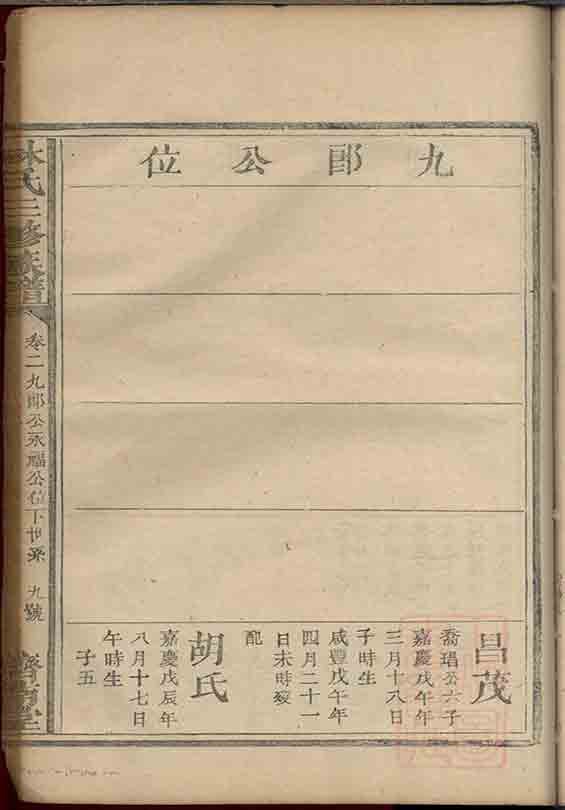 九郎公位
昌茂
喬琩公六子
嘉慶戊午年
三月十八日
子時生
咸豐戊午年
四月二十一
日未時歿
配
胡氏
嘉慶戊辰年
八月十七日
午時生
子五
林氏三修族譜
卷二九郎公永福公位下世系 九號